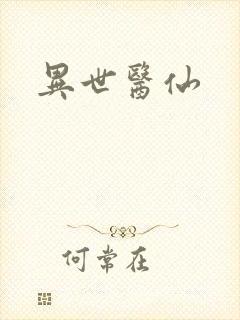 異世醫仙
何常在